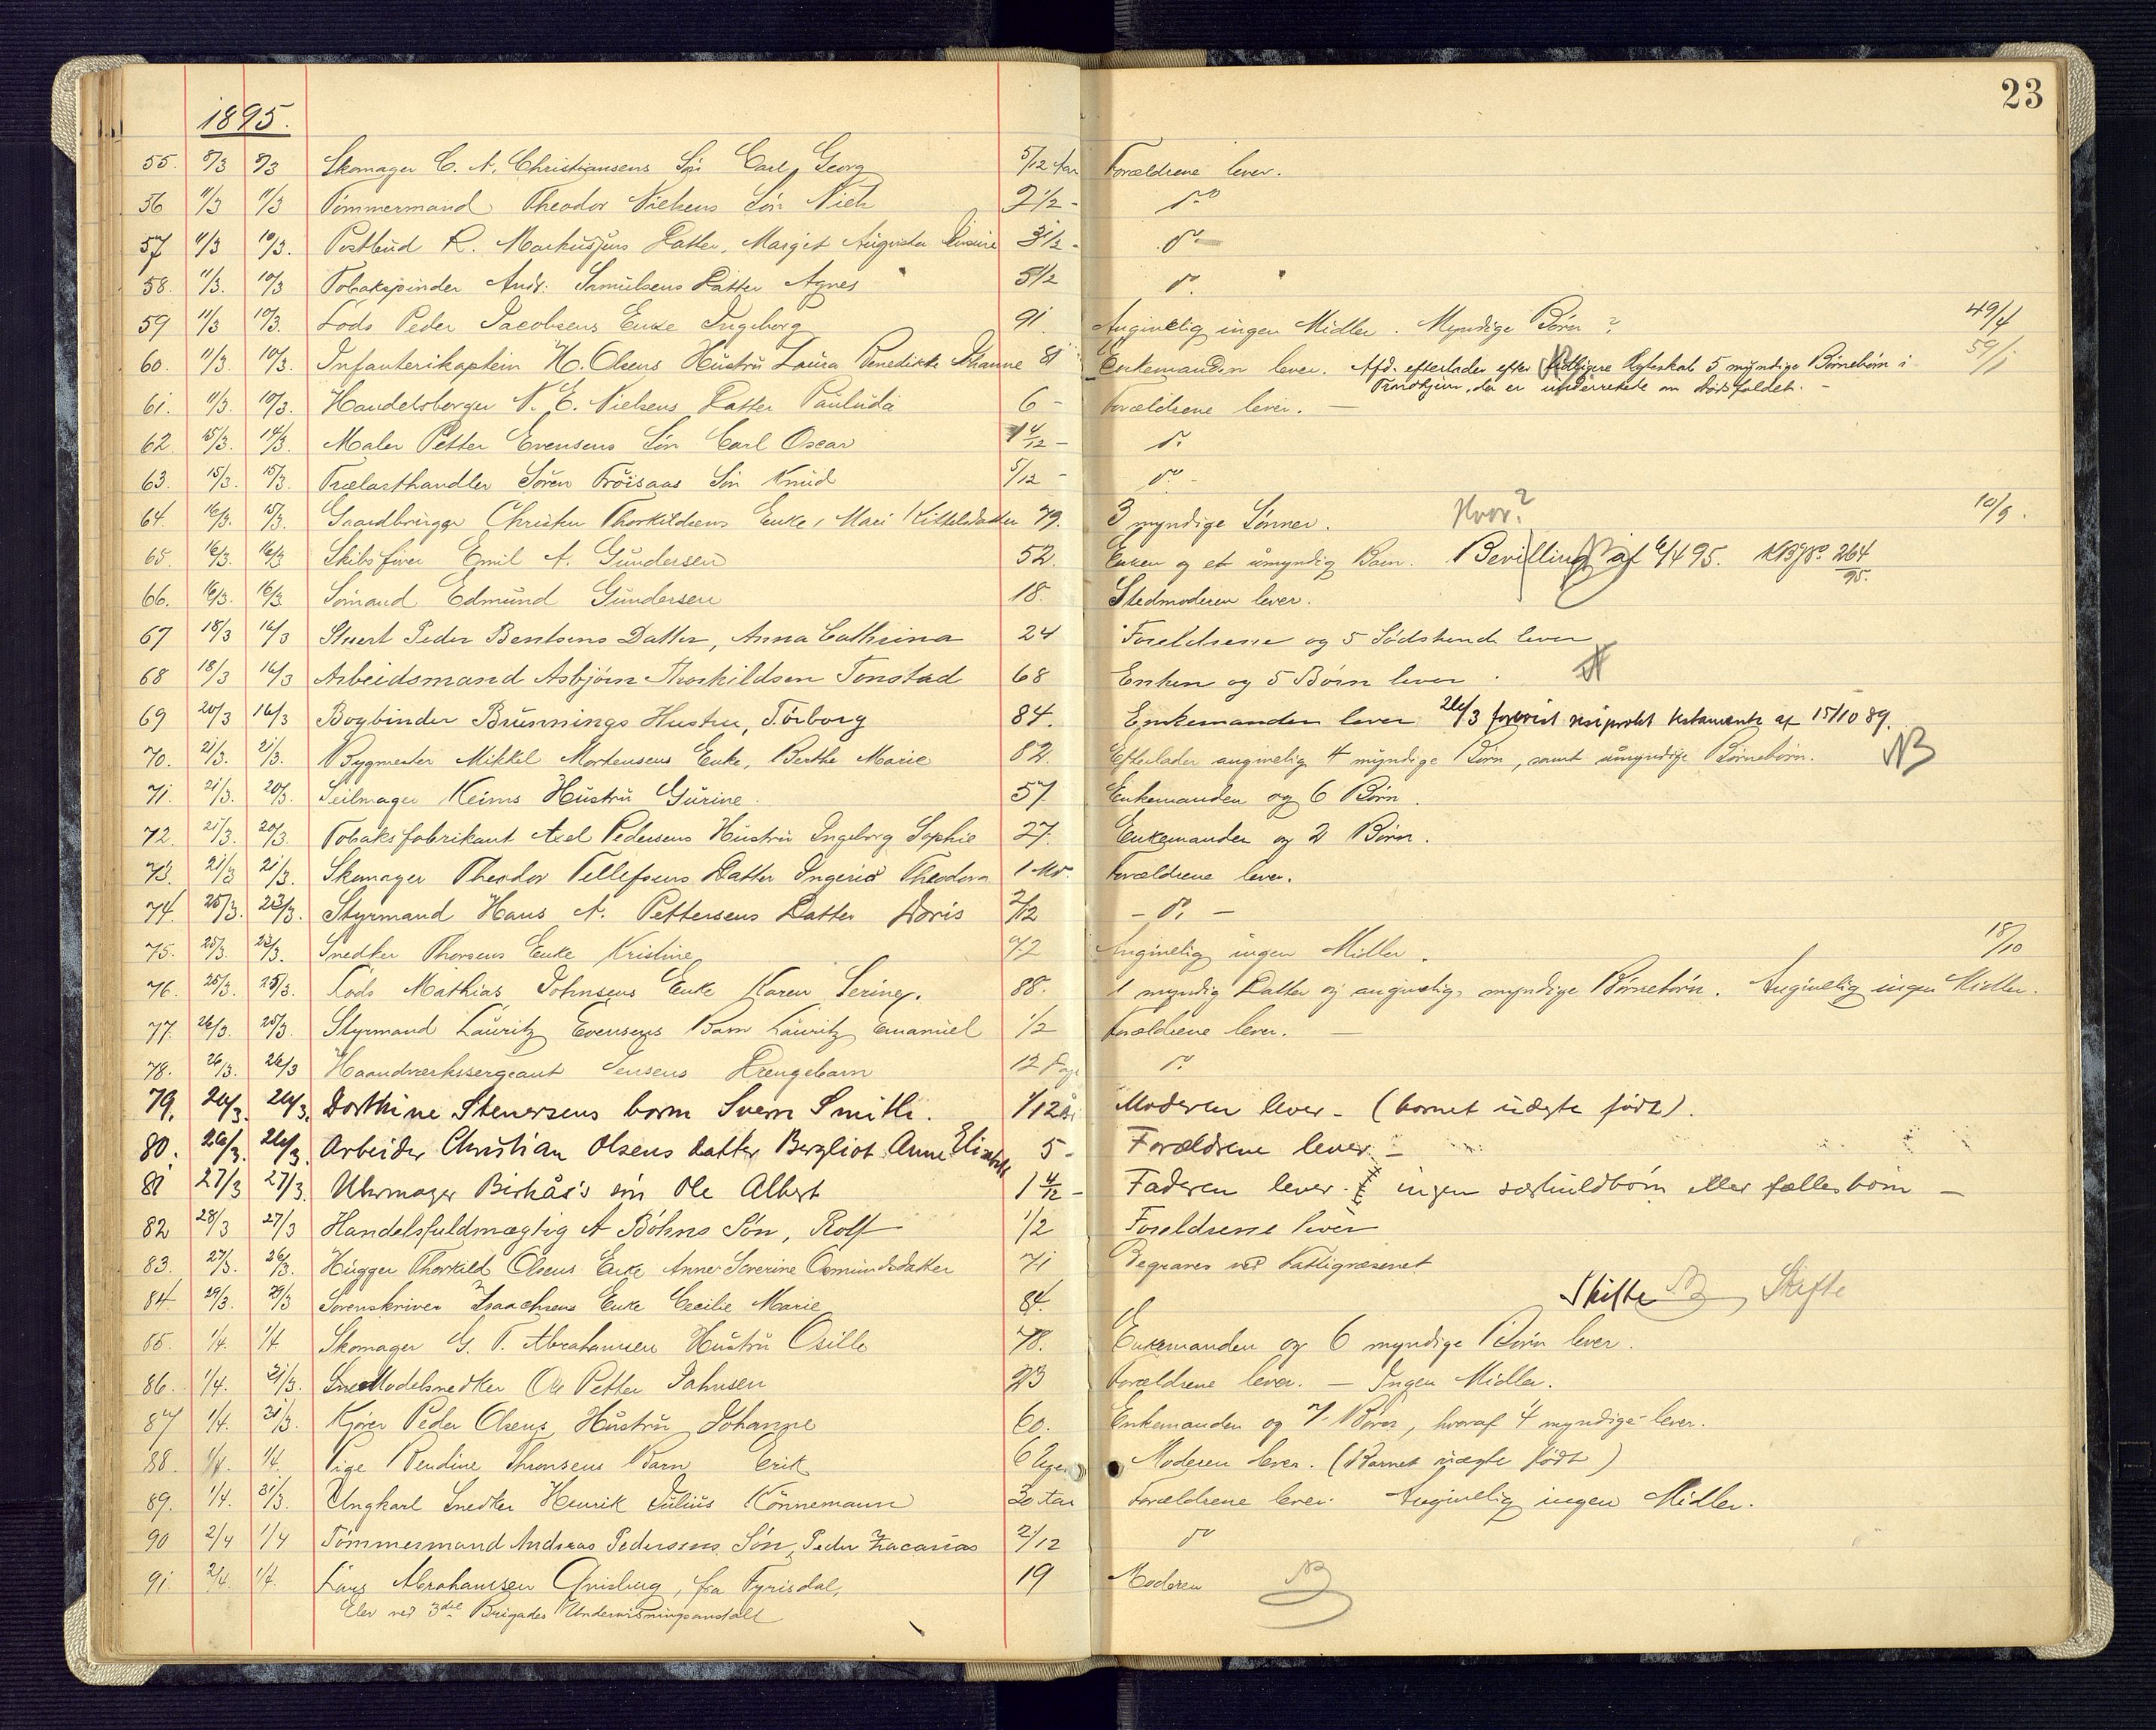 23
1895.
55. 8/3 8/3 Skomager C. A. Christiansens Søn Carl Georg 5/12 Aar Forældrene lever.
56 11/3 11/3 Tømmermand Theodor Nielsens Søn Niels 2 1/2 - do
57 11/3 10/3. Postbud R. Markussens Datter, Margit Augusta 3 1/2 - do
58. 11/3. 10/3 Tobakspinder Andr. Samuelsens Datter Agnes 5 1/2 do
59 11/3 10/3. Lods Peder Jacobsens Enke Ingeborg 91. Angivelig ingen Midler. Myndige Børn? 49/4
60. 11/3. 10/3. Infanterikaptein H. Olsens Hustru Laura Benedikte Johanne 81 Enkemanden lever. Afd. efterlader efter tidligere Egteskab 5 myndige Børnebørn i 59/1
Trondhjem, der er underrettede om dødsfaldet. -
61. 11/3. 10/3. Handelsborger N. E. Nielsens Datter Paulùda 6 - Forældrene lever. -
62 15/3. 14/3. Maler Petter Evensens Søn Carl Oscar 1 4/12 - do
63. 15/3. 15/3. Trælasthandler Søren Frøisaas Søn Knud 5/12 - do -
64. 16/3. 15/3. Gaardbruger Christen Thorkildsens Enke, Mari Kittelsdatter 79. 3 myndige Sønner. Hvor? 10/9.
65. 16/3. 16/3 Skibsfører Emil A. Gundersen 52. Enken og et umyndig Barn. Bevilling af 6/4 95. No 264/95.
66. 16/3. 16/3. Sømand Edmund Gundersen 18. Stedmoderen lever.
67 18/3 16/3 Stuert Peder Bentsens Datter, Anna Cathrina 24 Foreldrene og 5 Sødskende lever
68 18/3 16/3 Arbeidsmand Asbjørn Thorkildsen Tonstad 68 Enken og 5 Børn lever.
69 20/3 16/3 Bogbinder Brünnings Hustru, Torborg 84. Enkemanden lever 26/3 forevist resiprokt testamente af 15/10 89.
70. 21/3. 21/3. Bygmester Mikkel Mortensens Enke, Berthe Marie 82. Efterlader angivelig 4 myndige Børn, samt umyndige Børnebørn. NB
71. 21/3. 20/3. Seilmager Keims Hustru Gurine. 57 Enkemanden og 6 Børn.
72. 21/3. 20/3. Tobaksfabrikant Axel Pedersens Hustru Ingeborg Sophie 27. Enkemanden og 2 Børn.
73. 21/3 21/3. Skomager Theodor Tellefsens Datter Ingerid Theodora 1 Md. Forældrene lever.
74. 25/3. 23/3. Styrmand Hans A. Pettersens Datter Doris 2/12 - do -
75. 25/3. 23/3. Snedker Thorsens Enke Kristine 72 Angivelig ingen Midler. 18/10
76. 25/3. 25/3. Lods Mathias Johnsens Enke Karen Serine. 88. 1 myndig Datter og angivelig myndige Børnebørn. Angivelig ingen Midler.
77. 26/3. 25/3. Styrmand Lauritz Evensens Barn Lauritz Emanuel 1/2 Forældrene lever. -
78. 26/3. 26/3 Haandværkssergeant Jensens Drengebarn 12 Dage do
79. 26/3. 26/3. Dorthine Stenersens barn Sverre Smith. 1/12 År Moderen lever - (barnet uægte født).
80. 26/3. 26/3. Arbeider Christian Olsens datter Bergliot Anne Elisabeth 5 - Forældrene lever -
81 27/3 27/3. Uhrmager Birkås's søn Ole Albert 1 4/12 - Faderen lever. ingen særkuldbørn eller fællesbørn -
82 28/3 27/3 Handelsfuldmægtig A Bøhns Søn, Rolf 1/2 Foreldrene lever
83. 27/3. 26/3. Hugger Thorkild Olsens Enke Anne Severine Osmundsdatter 71 Begraves ved Fattigvæsenet
84 29/3. 29/3 Sorenskriver Isaachsens Enke Cecilie Marie 84. Skifte NB Skifte
85. 1/4. 1/4 Skomager G. T. Abrahamsen Hustru Osille 78. Enkemanden og 6 myndige Børn lever.
86. 1/4. 31/3. Modelsnedker Ole Petter Jahnsen 23 Forældrene lever. - Ingen Midler.
87 1/4. 31/3. Kjører Peder Olsens Hustru Johanne 60. Enkemanden og 7 Børn, hvoraf 4 myndige lever.
88. 1/4. 1/4. Pige Bendine Thronsens Barn Erik 6 Uger Moderen lever. (Barnet uægte født)
89. 1/4. 31/3. Ungkarl Snedker Henrik Julius Könnemann 30 Aar Forældrene lever. Angivelig ingen Midler.
90 2/4 1/4 Tømmermand Andreas Pedersens Søn, Peder Zacarias 2/12 do
91. 2/4. 1/4. Lars Abrahamsen, fra Fyrisdal, 19 Moderen NB
Elev ved 3die Brigades Underwisningsanstalt